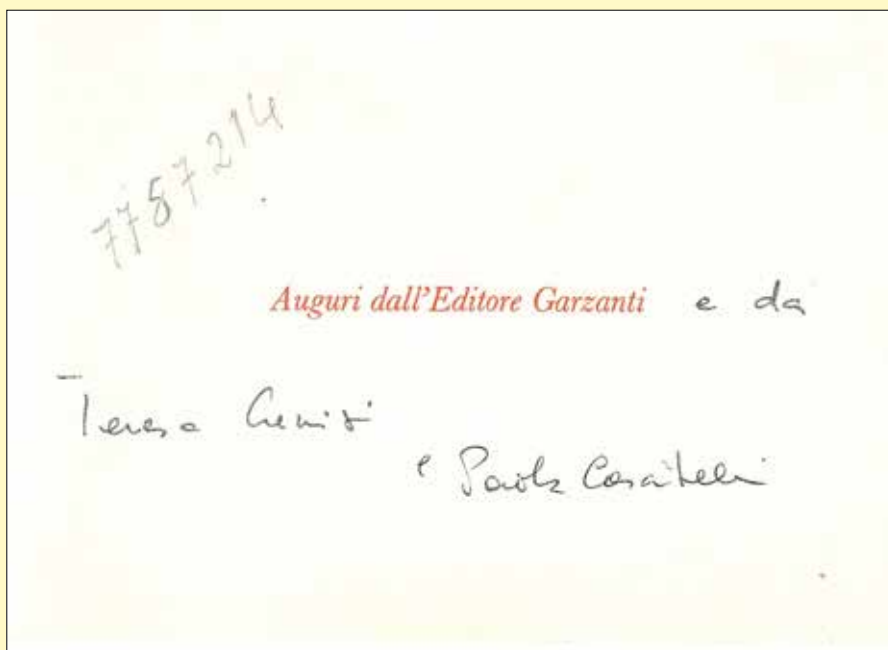 7787214
Auguri dall'Editore Garzanti e da
Teresa Cremisi
e Paola